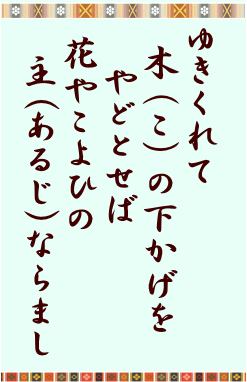 ゆきくれて
木（こ）の下かげを
やどとせば
花やこよひの
主（あるじ）ならまし